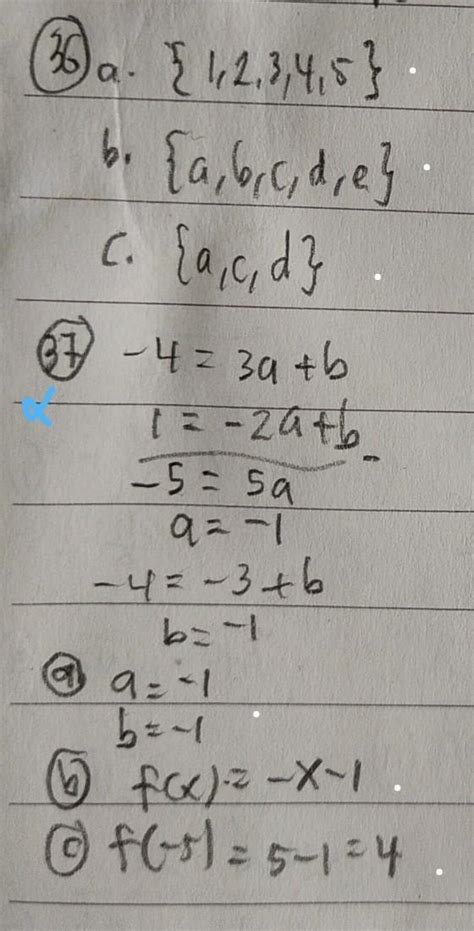 36 a. {1,2,3,4,5}
b. {a,b,c,d,e}
c. {a,c,d}
37 -4 = 3a+b
1 = -2a+b -
-5 = 5a
a = -1
-4 = -3+b
b = -1
a a = -1
b = -1
b f(x) = -x-1
c f(-5) = 5-1 = 4